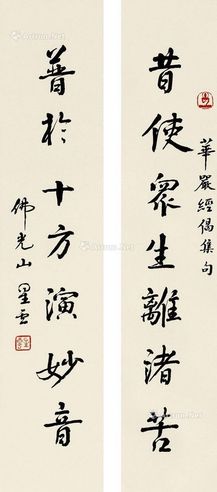 華嚴經偈集句
昔使眾生離諸苦
普於十方演妙音
佛光山 星雲